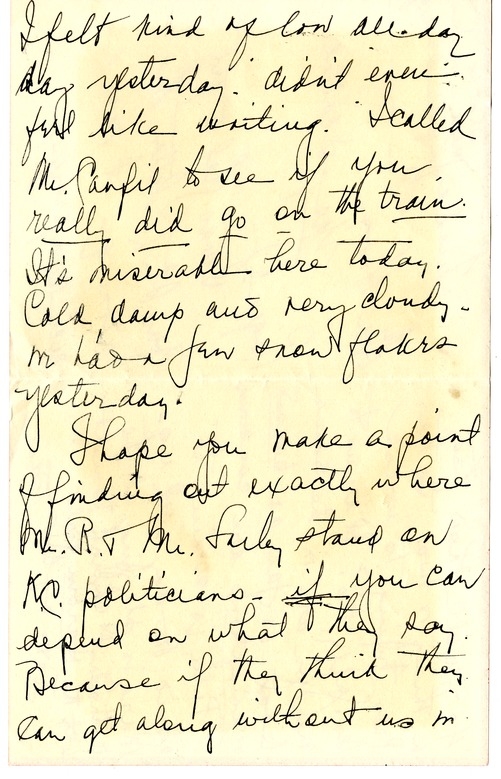 I felt kind of low all-day
day yesterday. didn't even
feel like writing. I called
Mr. Canfil to see if you
really did go on the train.
It's miserable here today.
Cold, damp and very cloudy.
We had a few snow flakes
yesterday.
I hope you make a point
of finding out exactly where
Mr. R. & Mr. Farley stand on
K.C. politicians - if you can
depend on what they say.
Because if they think they
can get along without us in